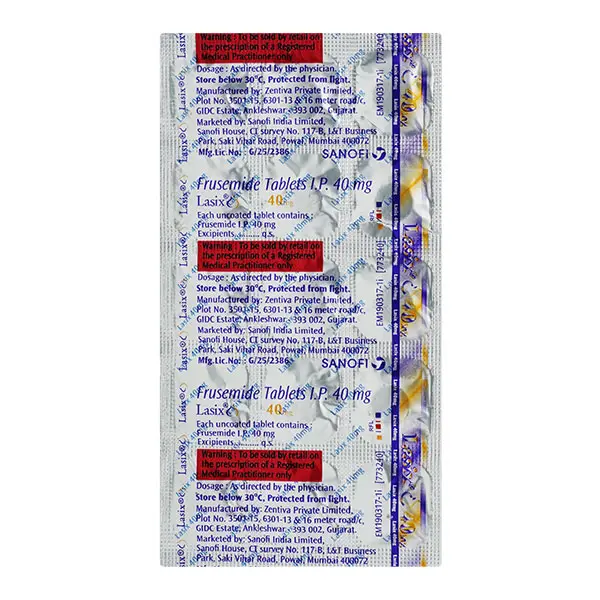 Warning : To be sold by retail on
the prescription of a Registered
Medical Practitioner only
Dosage : As directed by the physician.
Store below 30°C, Protected from light.
Manufactured by: Zentiva Private Limited,
Plot No. 3501-15, 6301-13 & 16 meter road/c,
GIDC Estate, Ankleshwar - 393 002, Gujarat.
Marketed by: Sanofi India Limited,
Sanofi House, CT survey No. 117-B, L&T Business
Park, Saki Vihar Road, Powai, Mumbai 400072
Mfg.Lic.No. : G/25/2386
SANOFI
EM190317-1I [773240]
Frusemide Tablets I.P. 40 mg
Lasix®
40mg
Each uncoated tablet contains :
Frusemide I.P. 40 mg
Excipients......... q.s.
RFL
Warning : To be sold by retail on
the prescription of a Registered
Medical Practitioner only
Dosage : As directed by the physician.
Store below 30°C, Protected from light.
Manufactured by: Zentiva Private Limited,
Plot No. 3501-15, 6301-13 & 16 meter road/c,
GIDC Estate, Ankleshwar - 393 002, Gujarat.
Marketed by: Sanofi India Limited,
Sanofi House, CT survey No. 117-B, L&T Business
Park, Saki Vihar Road, Powai, Mumbai 400072
Mfg.Lic.No. : G/25/2386
SANOFI
EM190317-1I [773240]
Frusemide Tablets I.P. 40 mg
Lasix®
40mg
Each uncoated tablet contains :
Frusemide I.P. 40 mg
Excipients......... q.s.
RFL
Warning : To be sold by retail on
the prescription of a Registered
Medical Practitioner only
Dosage : As directed by the physician.
Store below 30°C, Protected from light.
Manufactured by: Zentiva Private Limited,
Plot No. 3501-15, 6301-13 & 16 meter road/c,
GIDC Estate, Ankleshwar - 393 002, Gujarat.
Marketed by: Sanofi India Limited,
Sanofi House, CT survey No. 117-B, L&T Business
Park, Saki Vihar Road, Powai, Mumbai 400072
EM190317-1I [773240]
Lasix 40mg